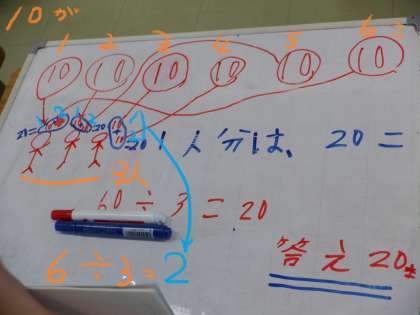 10が
1 2 3 4 5 6
10 10 10 10 10 10
1人分は、20=
3人
60÷3=20
6÷3=2
答え20